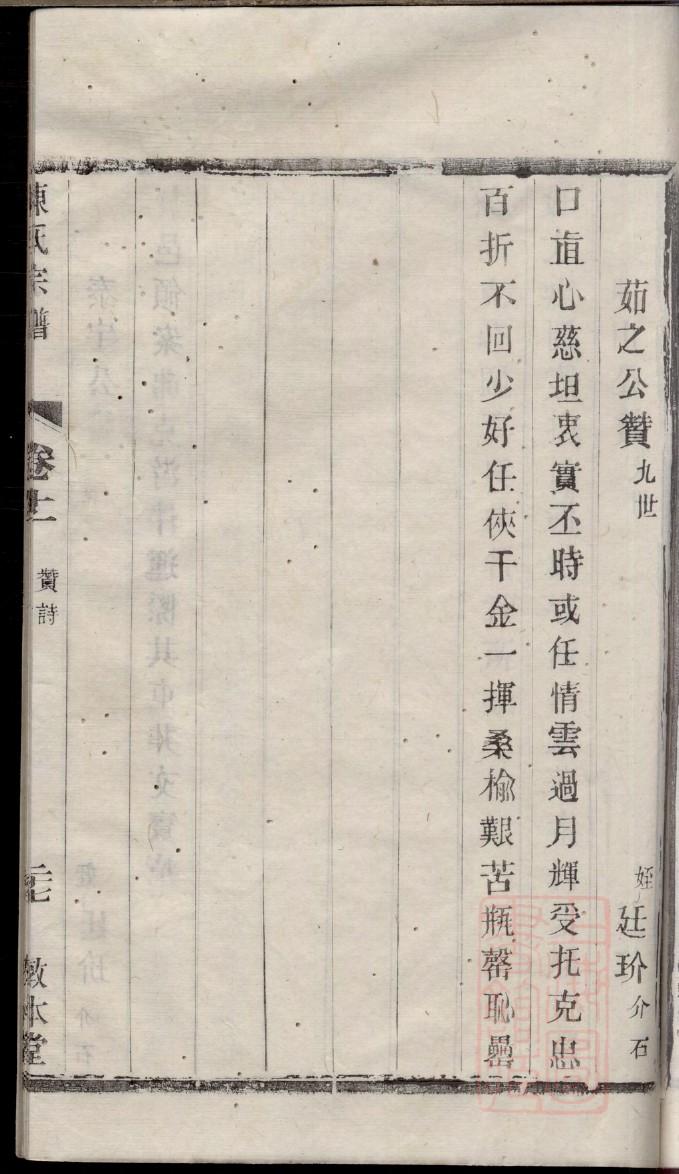 茹之公贊 九世
姪 廷玠 介石
口直心慈坦衷實丕時或任情雲過月輝受托克忠
百折不回少好任俠千金一揮桑榆艱苦瓶罄恥罍
陳氏宗譜
卷十一
贊詩
敦本堂